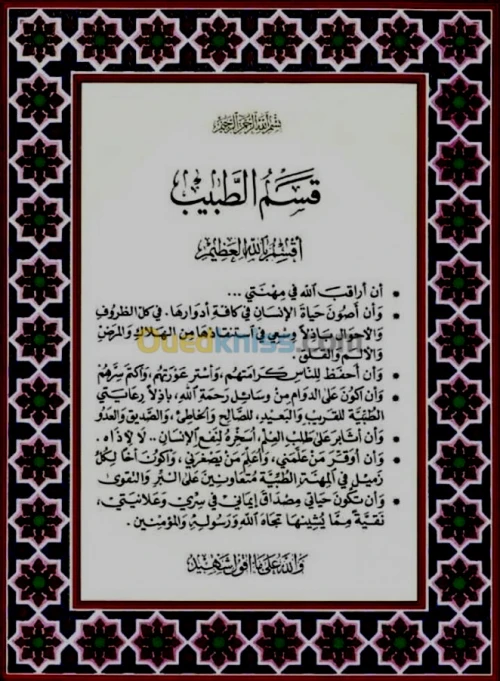 بسم الله الرحمن الرحيم
قسم الطبيب
أقسم بالله العظيم
• أن أراقب الله في مهنتي ...
• وأن أصون حياة الإنسان في كافة أدوارها. في كل الظروف
والأحوال باذلاً وسعي في استنقاذها من الهلاك والمرض
والألم والقلق.
• وأن أحفظ للناس كرامتهم، وأستر عورتهم، وأكتم سرهم
• وأن أكون على الدوام من وسائل رحمة الله، باذلاً رعايتي
الطبية للقريب والبعيد، للصالح والخاطئ، والصديق والعدو
• وأن أثابر على طلب العلم، أسخره لنفع الإنسان .. لا لأذاه.
• وأن أوقر من علمني، وأعلم من يصغرني، وأكون أخا لكل
زميل في المهنة الطبية متعاونين على البر والتقوى
• وأن تكون حياتي مصداق إيماني في سري وعلانيتي،
نقية مما يشينها تجاه الله ورسوله والمؤمنين.
والله على ما أقول شهيد
Ouedkniss.com